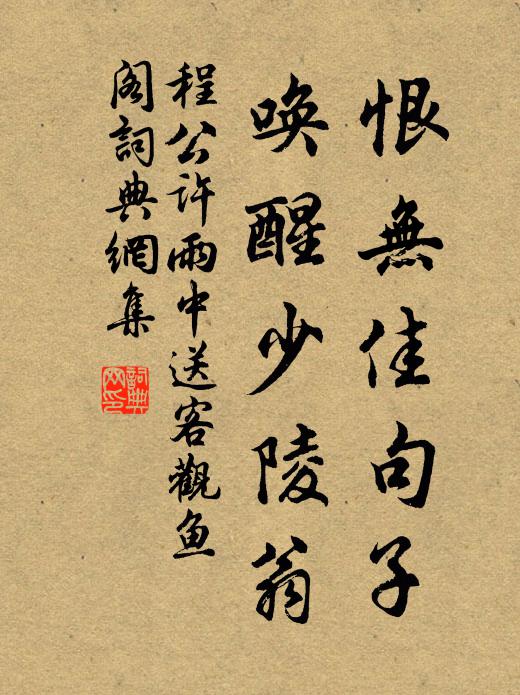 恨無佳句子
喚醒少陵翁
程公許雨中送客觀鱼
阁詞典網集
詞典网印